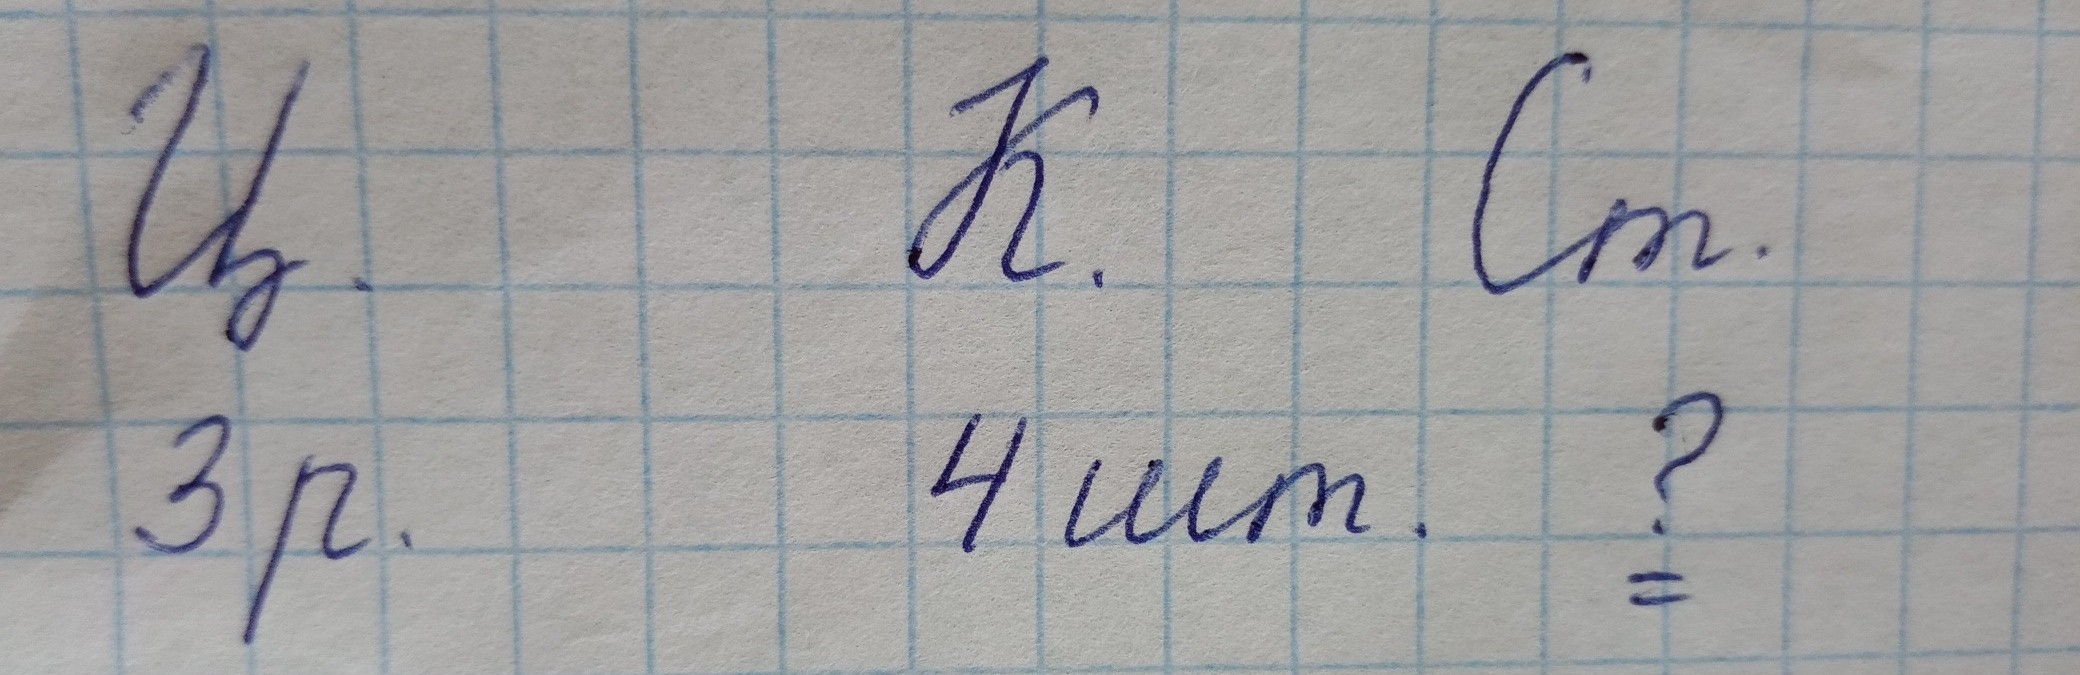 Ц. К. Ст.
3 р. 4 шт. ?
=